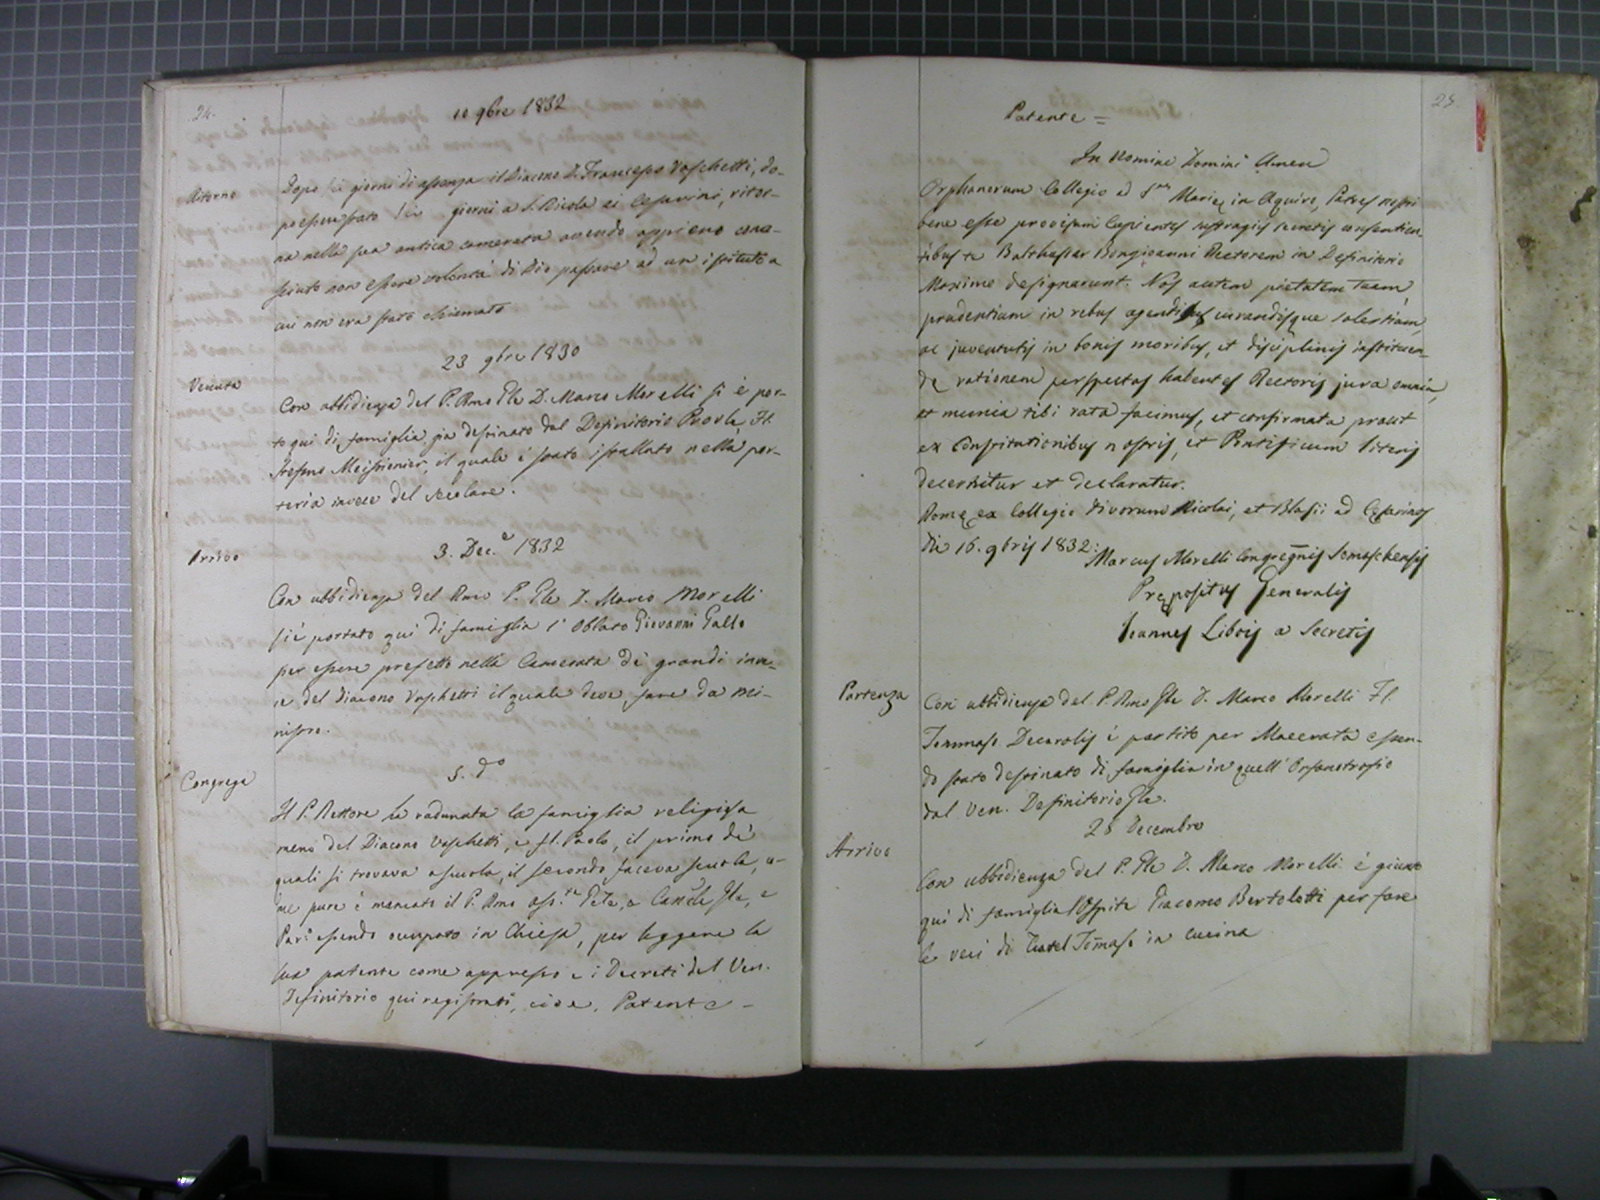 24.
10 9bre 1832
Ritorno
Dopo sei giorni di assenza il Diacono D. Francesco Vaschetti, do-
po essere stato sei giorni a S. Nicola ai Cesarini, ritor-
na nella sua antica camerata avendo appieno cono-
sciuto non essere volontà di Dio passare ad un istituto a
cui non era stato chiamato
23 9bre 1830
Venuta
Con obbidienza del P. Rmo Gle D. Marco Morelli si è por-
to qui di famiglia già destinato dal Definitorio Fr.
Stefano il quale è stato istallato nella por-
teria invece del secolare.
3. Dec.e 1832
Arrivo
Con ubbidienza del Rmo P. Gle D. Marco Morelli
si è portato qui di famiglia l'Oblato Giovanni Gallo
per essere prefetto nella Camerata de' grandi inve-
ce del Diacono Vaschetti il quale deve fare da Mi-
nistro.
5. do
Congrega
Il P. Rettore ha radunata la famiglia religiosa
meno del Diacono Vaschetti, e fr. Paolo, il primo de'
quali si trovava a scuola, il secondo faceva scuola, co-
me pure è mancato il P. Rmo e Canclle Gle, e
Par.o essendo occupato in Chiesa, per leggere la
sua patente come appresso e i Decreti del Ven.
Definitorio qui registrati, cioè, Patente -
25.
Patente =
In Nomine Domini Amen
Orphanorum Collegio ad S.am Mariæ in Aquiro, Patres nostri
bene esse provisum Cupientes suffragiis secretis consentien-
tibus te Balthassar Bongioanni Rectorem in Definitorio
Maximo designarunt. Nos autem pietatem Tuam,
prudentiam in rebus agendis curandisque solertiam,
ac juventutis in bonis moribus, et disciplinis instituen-
dæ rationem perspectas habentes Rectoris jura omnia,
et munia tibi rata facimus, et confirmata prout
ex Constitutionibus nostris, et Pontificum literis
decernitur et declaratur.
Romæ ex Collegio Divorum Nicolai, et Blasii ad Cæsarinos
die 16. 9bris 1832:
Marcus Morelli Congregnis Somaschensis
Præpositus Generalis
Joannes Libois a Secretis
Partenza
Con ubbidienza del P. Rmo Gle D. Marco Morelli Fr.
Tommaso Decarolis è partito per Macerata essen-
do stato destinato di famiglia in quell'Orfanotrofio
dal Ven. Definitorio Gle.
28 Decembre
Arrivo
Con ubbidienza del P. Gle D. Marco Morelli è giunto
qui di famiglia l'Ospite Giacomo Bertolotti per fare
le veci di Fratel Tomaso in cucina